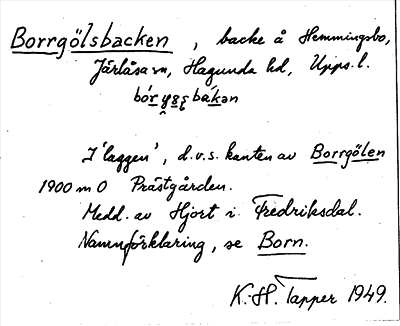 Borrgölsbacken, backe å Hemmingsbo,
Järlåsa sn, Hagunda hd, Upps. l.
I 'laggen', d.v.s. kanten av Borrgölen
1900 m O Prästgården.
Medd. av Hjort i Fredriksdal.
Namnförklaring, se Born.
K.-H. Tapper 1949.